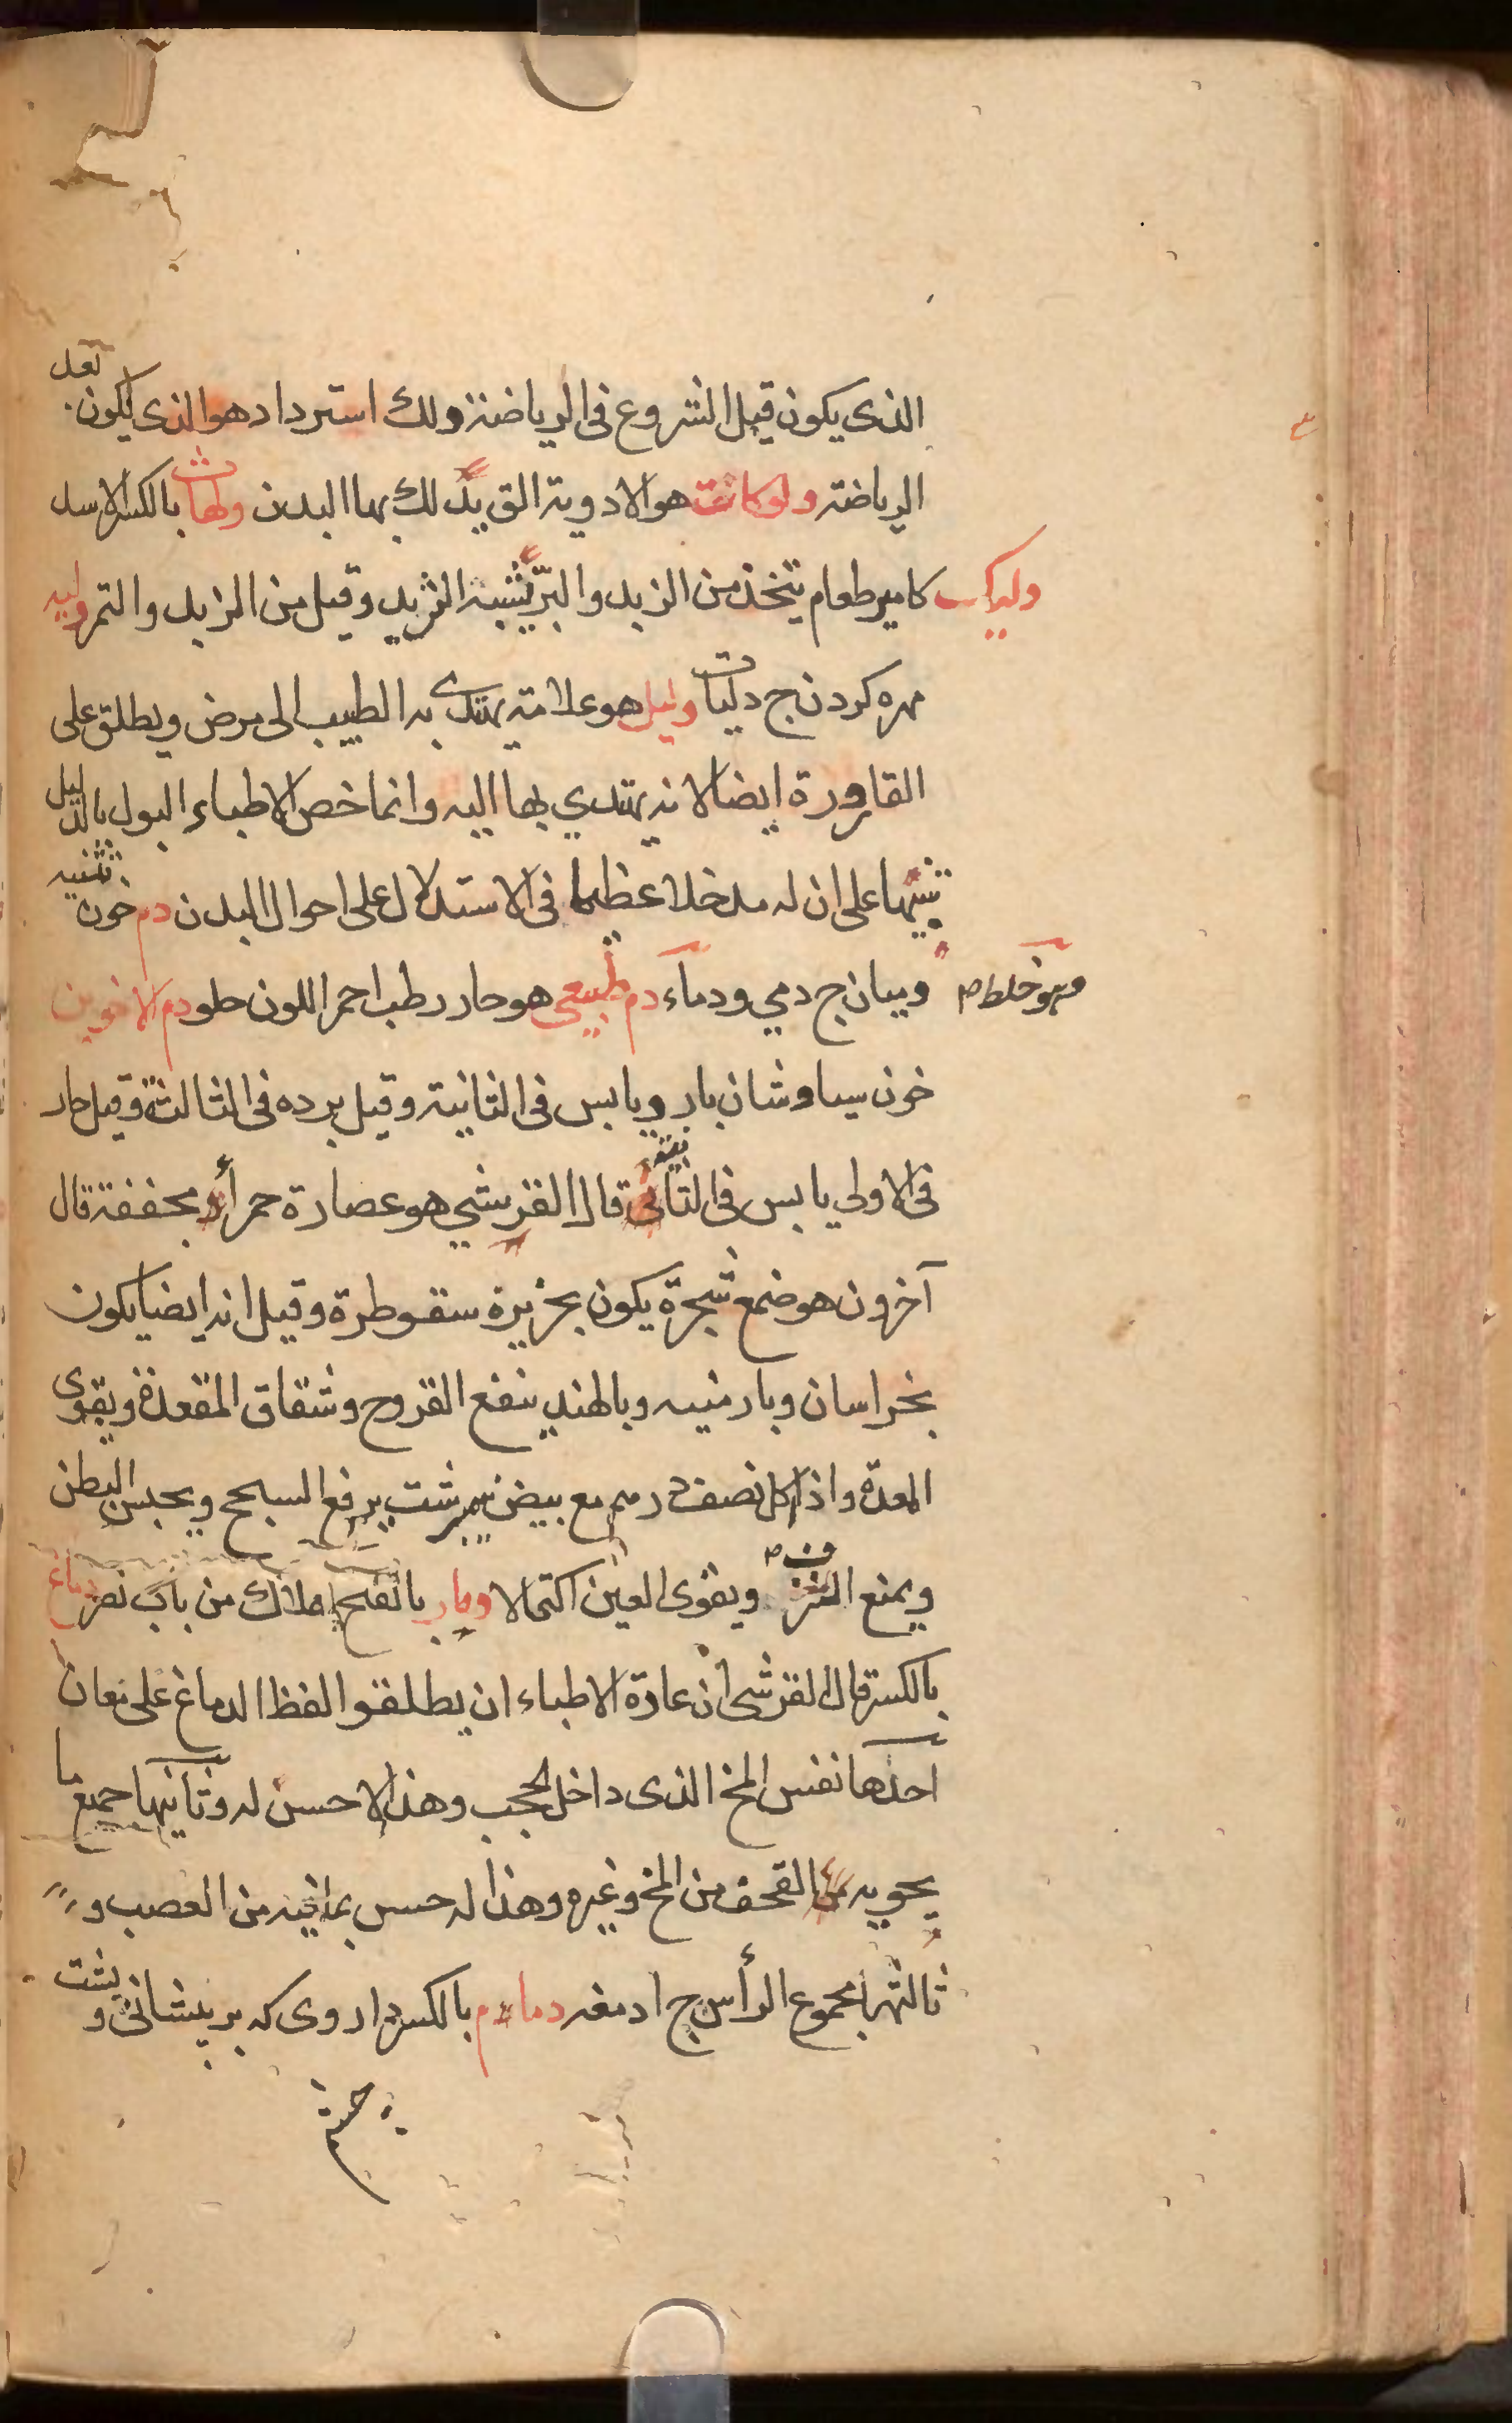 الذى يكون قبل الشروع فى الرياضة ودلك استرداد هو الذى يكون بعد
الرياضة ودلوكات هو الادوية التى يدلك بها البدن ودلهاث بالكسر الاسد
ودليك كامير طعام يتخذ من الزبد والبرّ يشبه الثريد وقيل من الزبد والتمر ودليه
مهره كردن ج دليات ودليل هو علامة يهتدى به الطبيب الى مرض ويطلق على
القارورة ايضا لانه يهتدي بها اليه وانما خص الاطباء البول بالدليل
تنبيها على ان له مدخلا عظيما فى الاستدلال على احوال البدن دم خون تثنيه
وهو خلط ص
دميان ج دمي ودمآء دم طبيعى هو حار رطب احمر اللون حلو دم الاخوين
خون سياوشان بارد يابس فى الثانية وقيل برده فى الثالثة وقيل حار
فى الاولي يابس فى الثانية قال القرشي هو عصارة حمرآء مجففة قال
آخرون هو ضمع شجرة يكون بجزيرة سقوطرة وقيل انه ايضا يكون
بخراسان وبارمنيه وبالهند ينفع القروح وشقاق المقعدة ويقوى
المعدة واذا اكل نصف درم مع بيض نيمبرشت يرفع السحج ويحبس البطن
ويمنع النزف ويقوى العين اكتحالا ودمار بالفتح هلاك من باب نصر دماغ
بالكسر قال القرشى ان عادة الاطباء ان يطلقوا لفظ الدماغ على معان
احدها نفس المخ الذى داخل الحجب وهذا لا حسن له وثانيها جميع ما
يحويه القحف من المخ وغيره وهذا له حسن بما فيه من العصب و
ثالثها مجموع الرأس ج ادمغه دمادم بالكسر داروى كه بر پيشانى و پشت
چشم